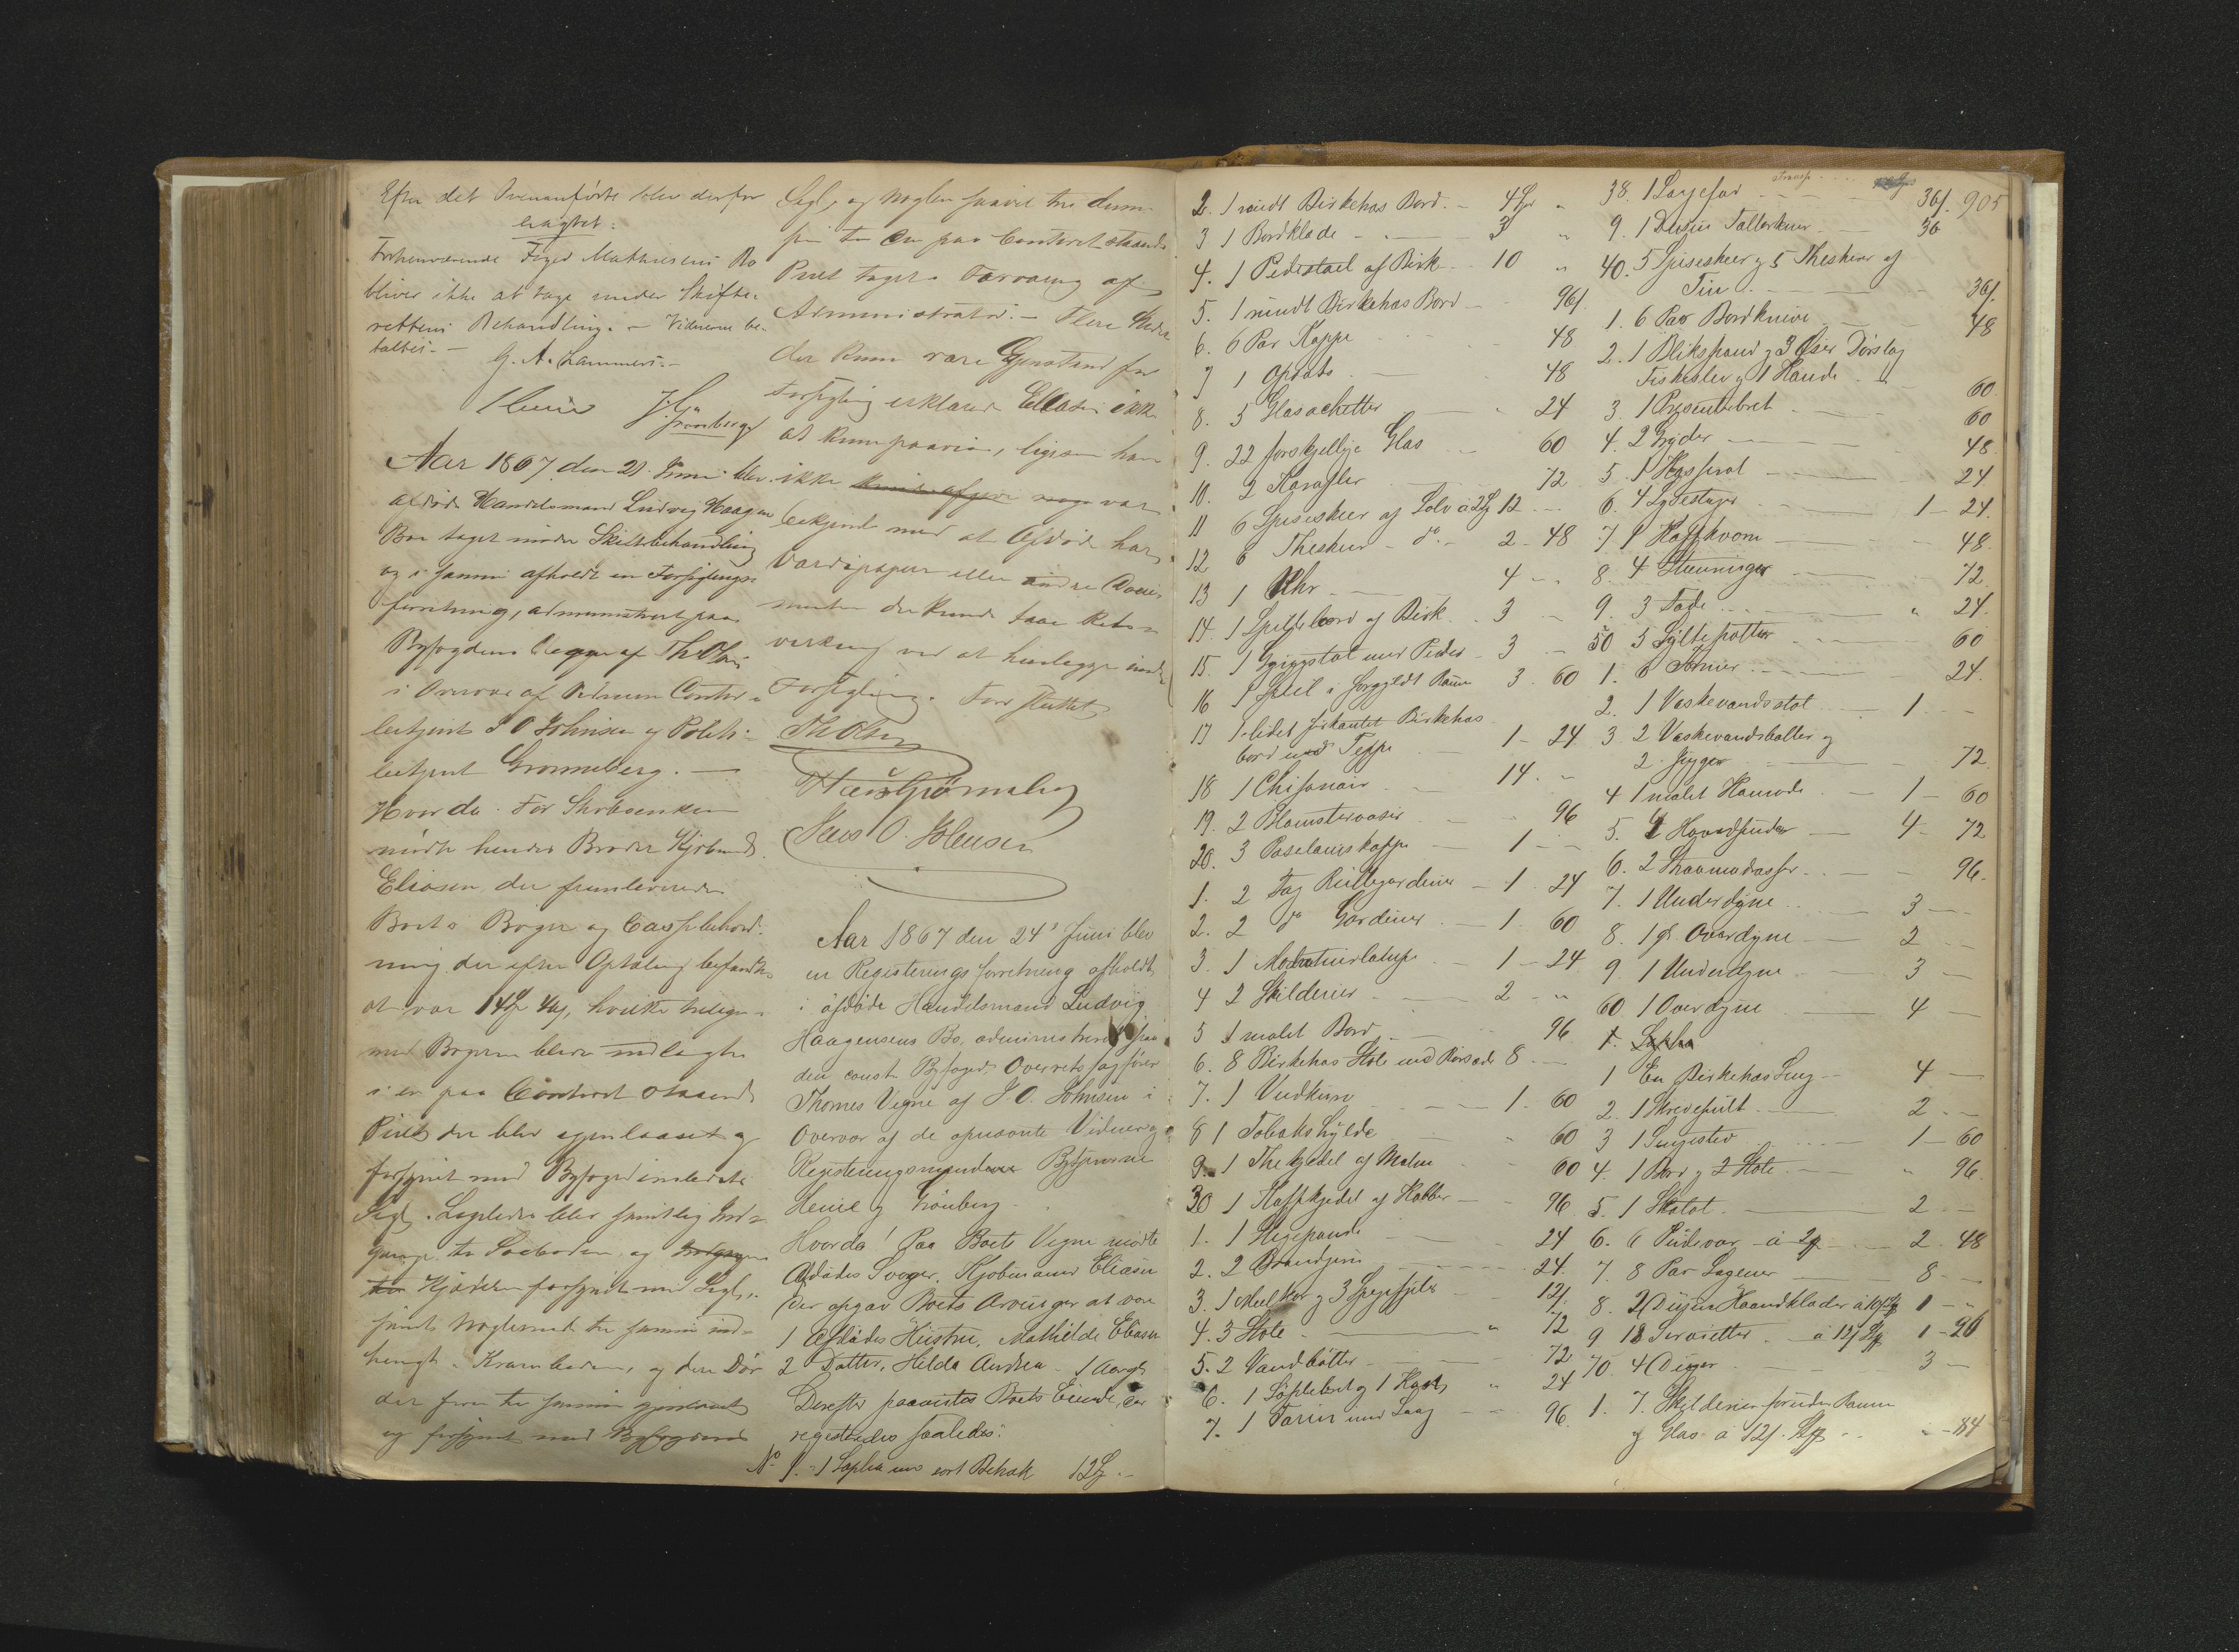 Efter det Ovenanførte blev derfor
eragtet:
Forhenværende Foged Mathiesens Bo
bliver ikke at tage under Skifte-
rettens Behandling. – Vidnerne be-
taltes. –
G. A. Lammers. –
Heme J. Grönberg
Aar 1867 den 21 Juni blev
afdøde Handelsmand Ludvig Haagens
Boe taget under Skiftebehandling
og i samme afholdt en Forseglings-
forretning, administreret paa
Byfogdens Vegne af Th Olsen
i Overvær af Vidnerne Contor-
betjent J O Johnsen og Politi-
betjent Gronneberg. –
Hvorda: For Skrbaenken
mødte hendes Broder Kjøbmd.
Eliasen der fremleverede
Boets Bøger og Cassebehold-
ning der efter Optælling befandtes
at være 14 hvilke tillige-
med Bøgerne bleve indlagte
i en paa Contoret staaende
Pult der blev igjenlaaset og
forsynet med Byfogedembedets
Segl. Ligeledes blev samtlig Ind-
gange til Søeboden og
til Kjelderen forsynet med Segl,
samt Nøglerne til samme ind-
hengt. Kramboden, og den Dør
der fører til samme
og forsynet med Byfogdens
Segl, og Nøglen saavel til denne
som til den paa Contoret staaende
Pult taget i Forvaring af
Administrator. – Flere
der kunne være Gjenstand for
Forsegling erklærede Eliasen ikke
at kunne paavise, ligesom han
ikke var
bekjendt med at Afdøde har
Værdipapirer eller andre Docu-
menter der kunde faae Retts-
virkning ved at henlægges under
Forsegling. Forr sluttet
Th Olsen
Hans Grönneberg
Jens O. Johnsen
Aar 1867 den 24' Juni blev
en Registeringsforretning afholdt
i afdøde Handelsmand Ludvig
Haagensens Bo, administreret paa
den const. Byfoged Overretssagfører
Thomes Vegne af J. O. Johnsen i
Overvær af de opnævnte Vidner og
Registeringsmændene Bytjenerne
Heme og Grönberg.
Hvorda! Paa Boets Vegne mødte
Afdødes Svoger, Kjøbmand Eliasen
Der opgav Boets Arvinger at være
1 Afdødes Hustru, Mathilde Eliasen
2 Datter, Hilda Andrea – 1 Aargl
Derefter paavistes Boets Eiende, der
registeredes saaledes:
No 1. 1 Sopha med sort Betræk 12 –
2. 1 rundt Birketræs Bord. – 4 "
3 1 Bordklæde – 3 "
4. 1 Pidestael af Birk – 10 "
5. 1 rundt Birketræs Bord – 96
6. 6 Par Kopper 48
7 1 Opsats 48
8. 5 Glasachetter 24
9. 22 forskjellige Glas 60
10. 2 Karafler 72
11 6 Spiseskeer af Sølv a 2 12
12 6 Theskeer do. – 2 – 48
13 1 Uhr – 4 –
14. 1 Spillebord af Birk – 3 –
15. 1 Gyngstol med Puder – 3 –
16 1 Speil i forgyldt Ramme 3. 60
17 1 lidet firkantet Birketræs
bord med Teppe 1 – 24
18 1 Chifonair 14. –
19. 2 Blomstervaser 96
20. 3 Poselainskopper 1 –
1. 2 Fag Rullegardiner – 1. 24
2. 2 do Gardiner – 1. 60
3. 1 Moderatuirlampe – 1 – 24
4 2 Skilderier – 2 –
5 1 malet Bord – 96
6. 8 Birketræs Stole med Rørsæde 8. –
7. 1 Vedkurv – 1. 60
8 1 Tobakshylde 60
9. 1 Thekjedel af Malm 60
30 1 Kaffekjedel af Kobber – 96
1. 1 Stegepande 24
2. 2 Brandjern 24.
3. 1 12
4. 3 Stole – " 72
5. 2 Vandbøtter 72
6. 1 " 24
7. 1 Tarin med Laag 96.
Transp 905
38. 1 36
9. 1 Dusin Tallerkener 36
40. 5 Spiseskeer og 5 Theskeer af
Tin 36
1. 6 Par Bordknive 48
2. 1 Blikspand og 3 Øser Dørslag
Fiskeslev og 1 60
3. 1 Presenterbret 60
4. 2 Gryder 48
5. 1 24
6. 4 Lysestager 1 – 24.
7 1 Kaffekvern 48
8. 4 72
9. 3 Fade " 24
50 5 Syltepotter 60
1. 6 Former 24.
2. 1 Vaskevandsstol 1 –
3 2 Vaskevandsboller og
2 Mugger 72
4 1 malet Komode 1 – 60
5. 4 Hovedpuder 4 – 72
6. 2 Straamadrasser 96.
7. 1 Underdyne 3 –
8. 1 gl. Overdyne 2 –
9 1 Underdyne 3 –
60 1 Overdyne 4 –
1. Sopha
1 En Birketræs Seng – 4 –
2. 1 Skrivepult 2 –
3 1 Sengested 1 – 60
4. 1 Bord og 2 Stole " 96
5. 1 Skatol 2 –
6. 6 Pudevar à 2 – 48
7. 8 Par Lagener 8 –
8. 2 Dusin Haandklæder à 1 –
9 18 Servietter à 12 1 – 96
70. 4 Duger 3 –
1. 7. Skylderier foruden Ramme
og Glas à 12 – 84